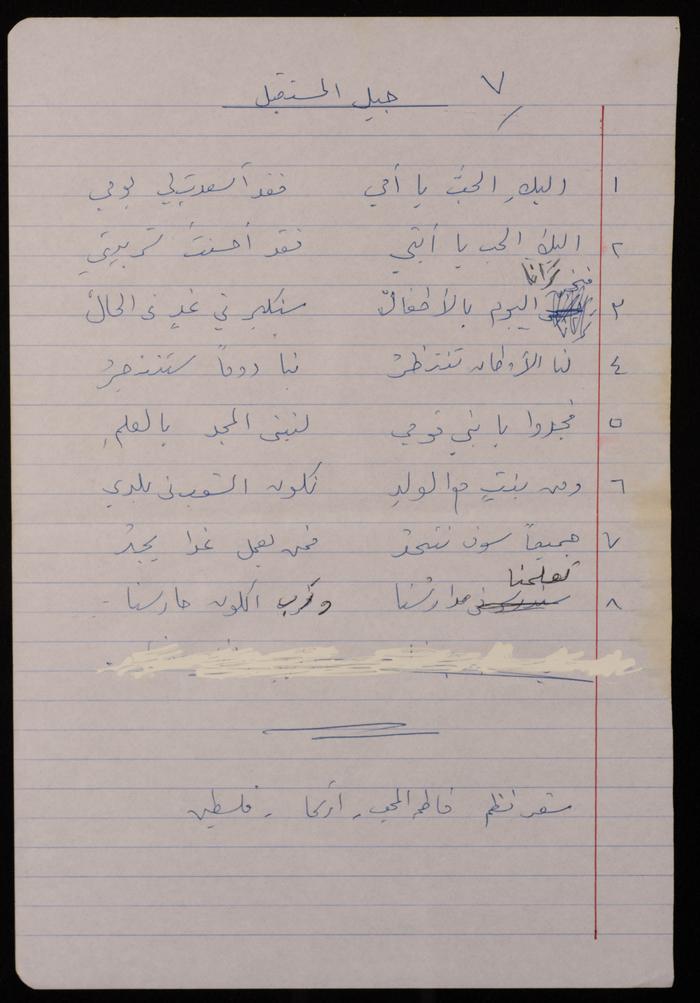 ٧
جيل المستقبل
١ اليكِ الحبُّ يا أمي فقد أسعدتِ لي يومي
٢ اليكَ الحب يا أبتي فقد أحسنتَ تربيتي
ترانا
٣ اليوم بالأطفالْ سنكبر في غدٍ في الحالْ
٤ لنا الأوطان تنتظرُ بنا دوماً ستنتصرُ
٥ فجدوا يا بني قومي لنبني المجد بالعلمِ
٦ ومن بنتٍ مع الولدِ نكون الشعب في بلدي
٧ جميعاً سوف نتحدُ فمن يعمل غدا يجدُ
تعلمنا
٨ مدارسُنا وربُ الكون حارسنا
شعر نظم فاطمة - أريحا - فلسطين